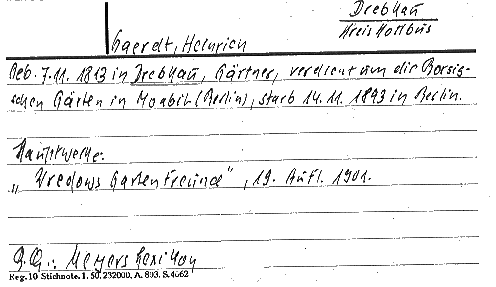 Drebkau
Kreis Kottbus
Gaerdt, Heinrich
Geb. 7.11.1813 in Drebkau, Gärtner, verdient um die Borsig-
schen Gärten in Moabit (Berlin), starb 14.11.1893 in Berlin.
Hauptwerke:
„Wredows Gartenfreund", 19. Aufl. 1901.
Q.Q.: Meyers Lexikon
Reg. 10 Stichnote. 1. 50. 232000. A. 893. S. 4062